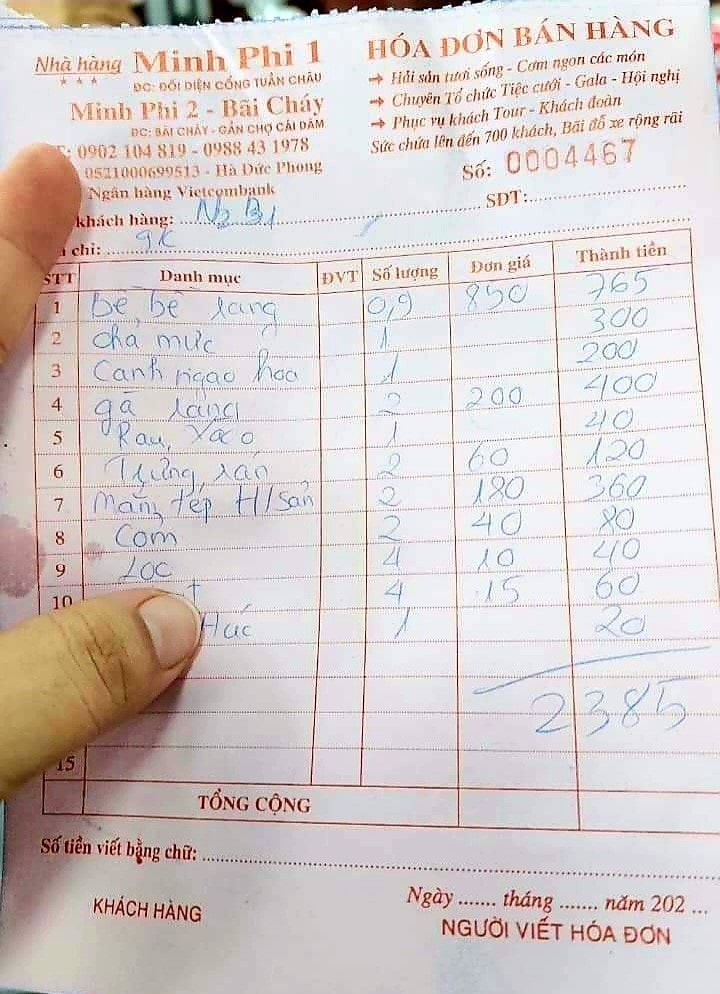 Nhà hàng Minh Phi 1
ĐC: ĐỐI DIỆN CỔNG TUẦN CHÂU
Minh Phi 2 - Bãi Cháy
ĐC: BÃI CHÁY - GẦN CHỢ CÁI DĂM
: 0902 104 819 - 0988 43 1978
0521000699513 - Hà Đức Phong
Ngân hàng Vietcombank
HÓA ĐƠN BÁN HÀNG
➔ Hải sản tươi sống - Cơm ngon các món
➔ Chuyên Tổ chức Tiệc cưới - Gala - Hội nghị
➔ Phục vụ khách Tour - Khách đoàn
Sức chứa lên đến 700 khách, Bãi đỗ xe rộng rãi
Số: 0004467
khách hàng: N2 B1 SDT:
chỉ: 9K
STT Danh mục ĐVT Số lượng Đơn giá Thành tiền
1 bề bề rang 0,9 850 765
2 chả mực 1 300
3 Canh ngao hoa 1 200
4 gà rang 2 200 400
5 Rau xào 1 40
6 Trứng rán 2 60 120
7 Măng tép H/Sản 2 180 360
8 Cơm 2 40 80
9 LOC 4 10 40
10 4 15 60
Húc 1 20
2385
15
TỔNG CỘNG
Số tiền viết bằng chữ:
Ngày ....... tháng ....... năm 202 ...
KHÁCH HÀNG NGƯỜI VIẾT HÓA ĐƠN